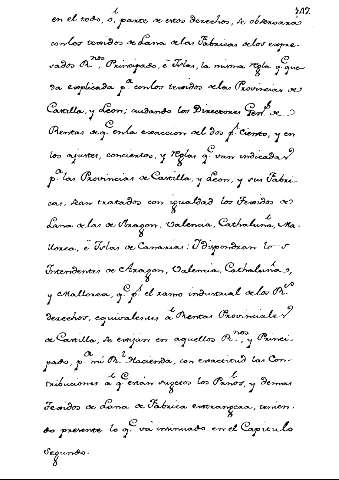 417.
en el todo, ó parte de estos derechos, se observará
con los texidos de Lana de las Fabricas de los expre-
sados R.nos, Principado, é Islas, la misma regla q.e que-
da explicada p.a con los texidos de las Provincias de
Castilla, y Leon; cuidando los Directores Gen.s de
Rentas de q.e en la exaccion del dos p.r ciento, y en
los ajustes, conciertos, y reglas q.e van indicadas
p.a las Provincias de Castilla, y Leon, y sus Fabri-
cas, sean tratados con igualdad los Texidos de
Lana de las de Aragon, Valencia, Cathaluña, Ma-
llorca, é Islas de Canarias: I dispondran los
Intendentes de Aragon, Valencia, Cathaluña,
y Mallorca, q.e p.r el ramo industrial de los R.s
derechos, equivalentes á Rentas Provinciales
de Castilla, se exijan en aquellos R.nos, y Princi-
pado, p.a mi R.l Hacienda, con exactitud las Con-
tribuciones á q.e están sugetos los Paños, y demas
Texidos de Lana de Fabrica extrangera, tenien-
do presente lo q.e vá insinuado en el Capitulo
segundo.